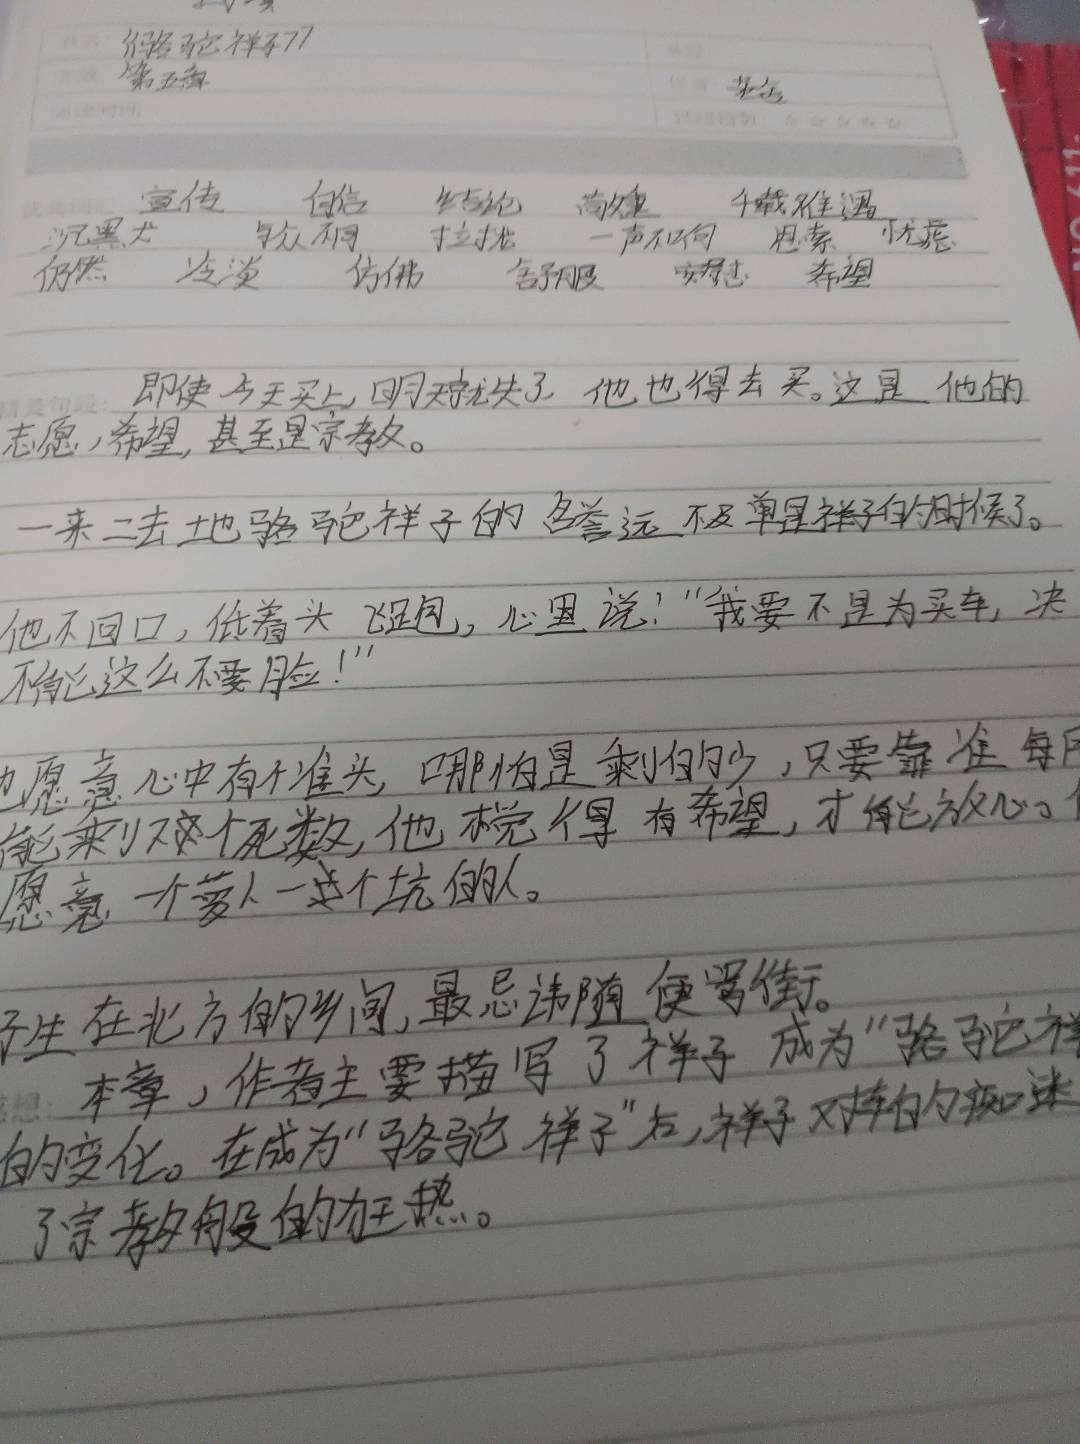 《骆驼祥子》
第五章
老舍
宣传 自信 结论 敲煌 千载难遇
沉默 与众不同 拉拢 一声不问 思索 忧虑
仍然 冷淡 仿佛 舒服 难过 希望
即使今天买上,明天就失了 他也得去买。这是他的
志愿,希望,甚至是宗教。
一来二去 土地骆驼祥子的名誉远不及单是祥子的时候了。
他不回口,低着头飞跑,心里说:“我要不是为买车,决
不能这么不要脸!”
愿意心中有个准头,哪怕是剩的少,只要靠准每月
能剩下个死数,他才觉得有希望,才能放心。
愿意一个萝人一个坑的人。
子生在北方的乡间,最忌讳随便骂街。
感想: 本章,作者主要描写了祥子成为“骆驼祥
的变化。在成为“骆驼祥子”后,祥子对车的痴迷
了宗教般的狂热。